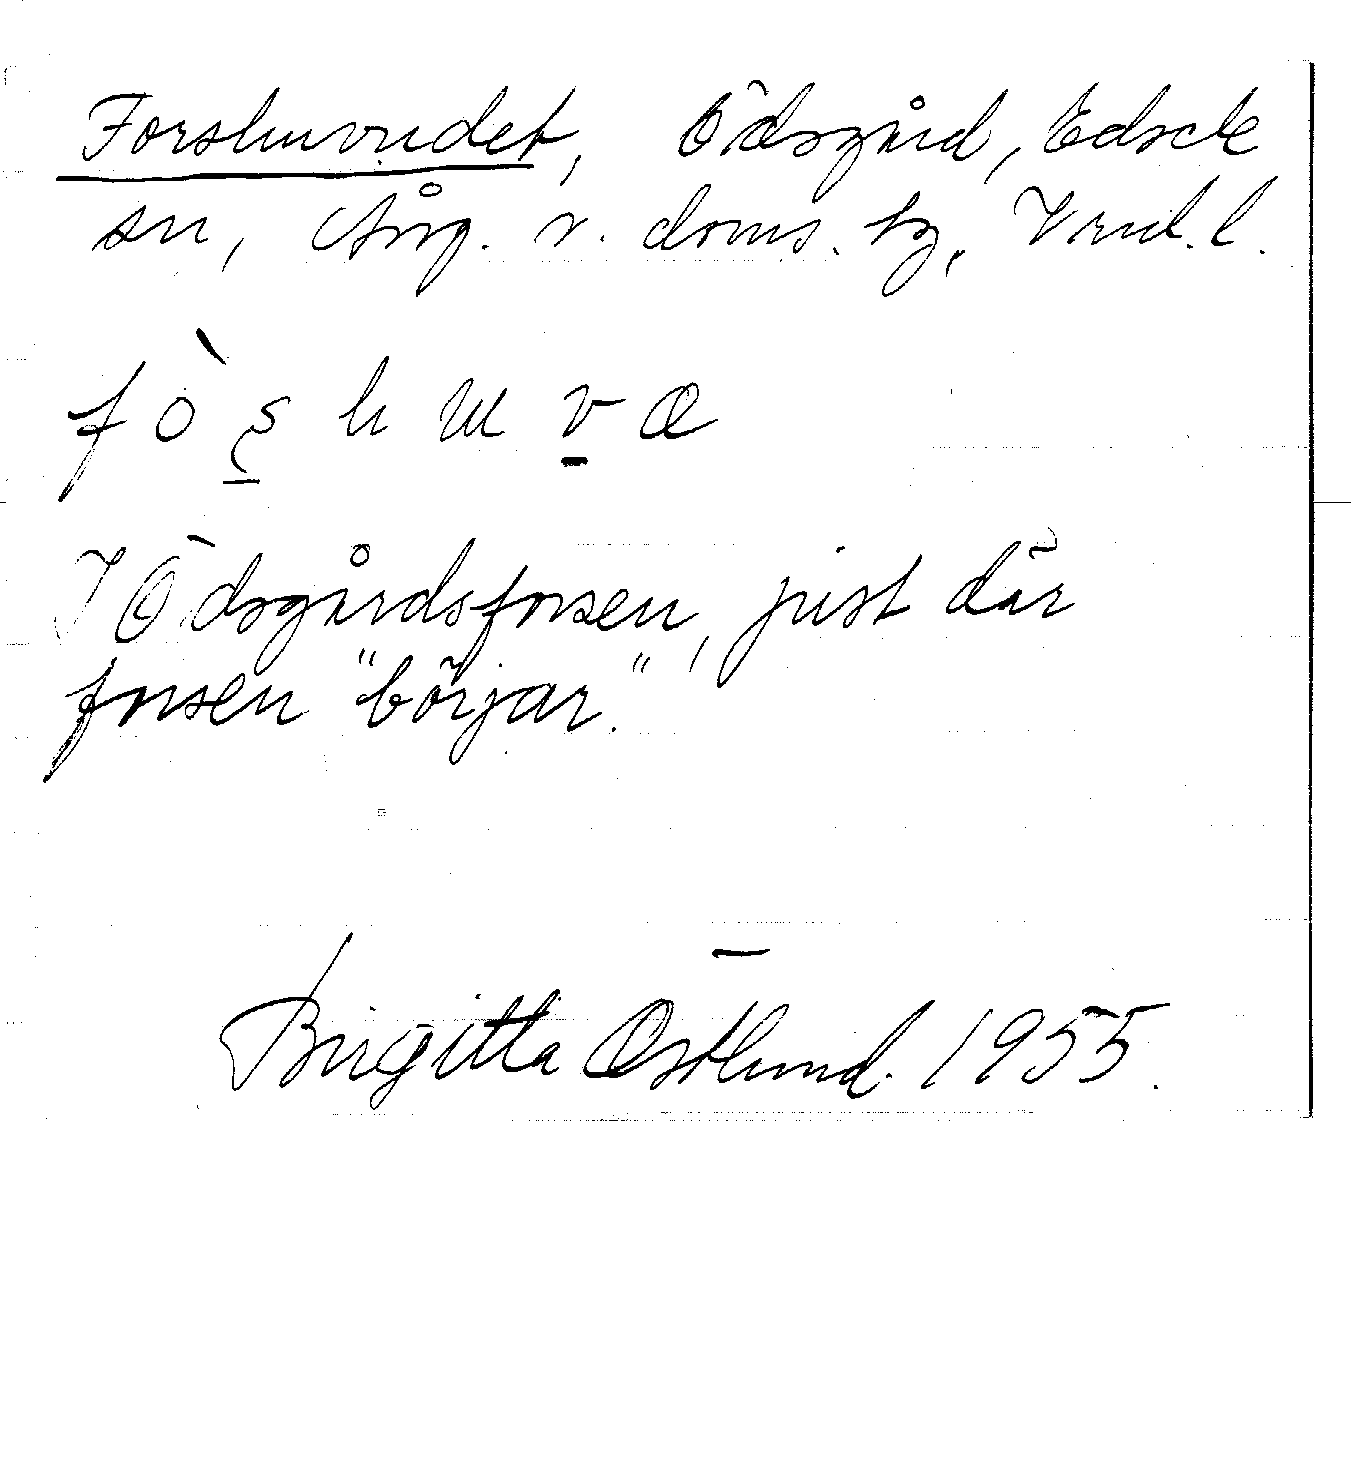 Forshuvudet, Ödsgård, Edsele
sn, Ång. v. doms. tg, Vnd. l.
fòs̱huv̱œ
I Ödsgårdsforsen, just där
forsen "börjar."
Birgitta Östlund. 1955.